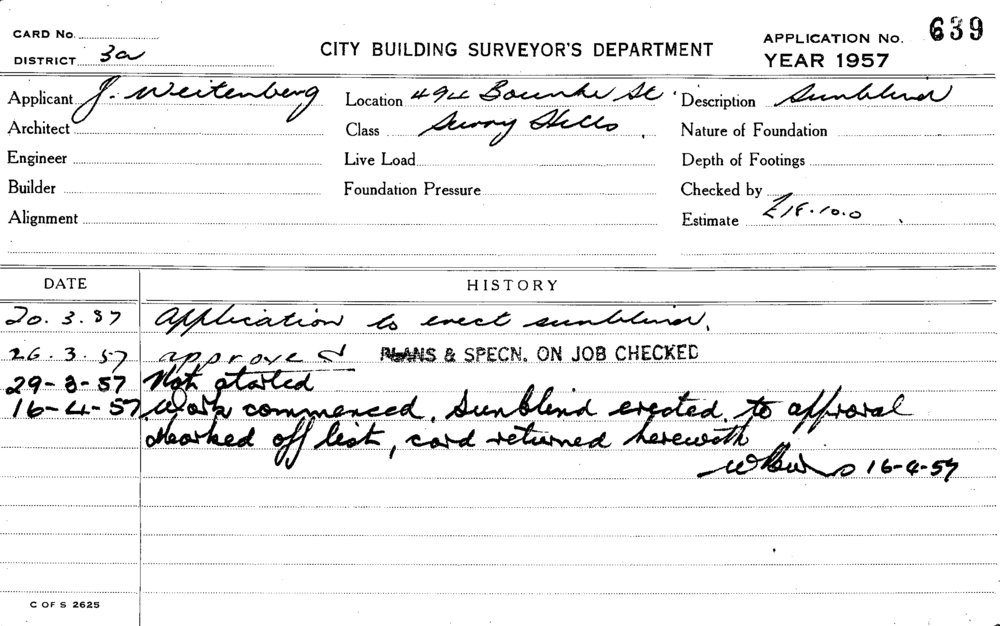 CARD No.
DISTRICT 3a
CITY BUILDING SURVEYOR'S DEPARTMENT
APPLICATION No. 639
YEAR 1957
Applicant J. Weitenberg Location 494 Bourke St. Description Sunblind
Architect Class Surry Hills. Nature of Foundation
Engineer Live Load Depth of Footings
Builder Foundation Pressure Checked by
Alignment Estimate £18.10.0
DATE HISTORY
20.3.57 Application to erect sunblind.
26.3.57 approved PLANS & SPECN. ON JOB CHECKED
29-3-57 Not started
16-4-57 Work commenced. Sunblind erected to approval
Marked off list, card returned herewith
16-4-57
C OF S 2625